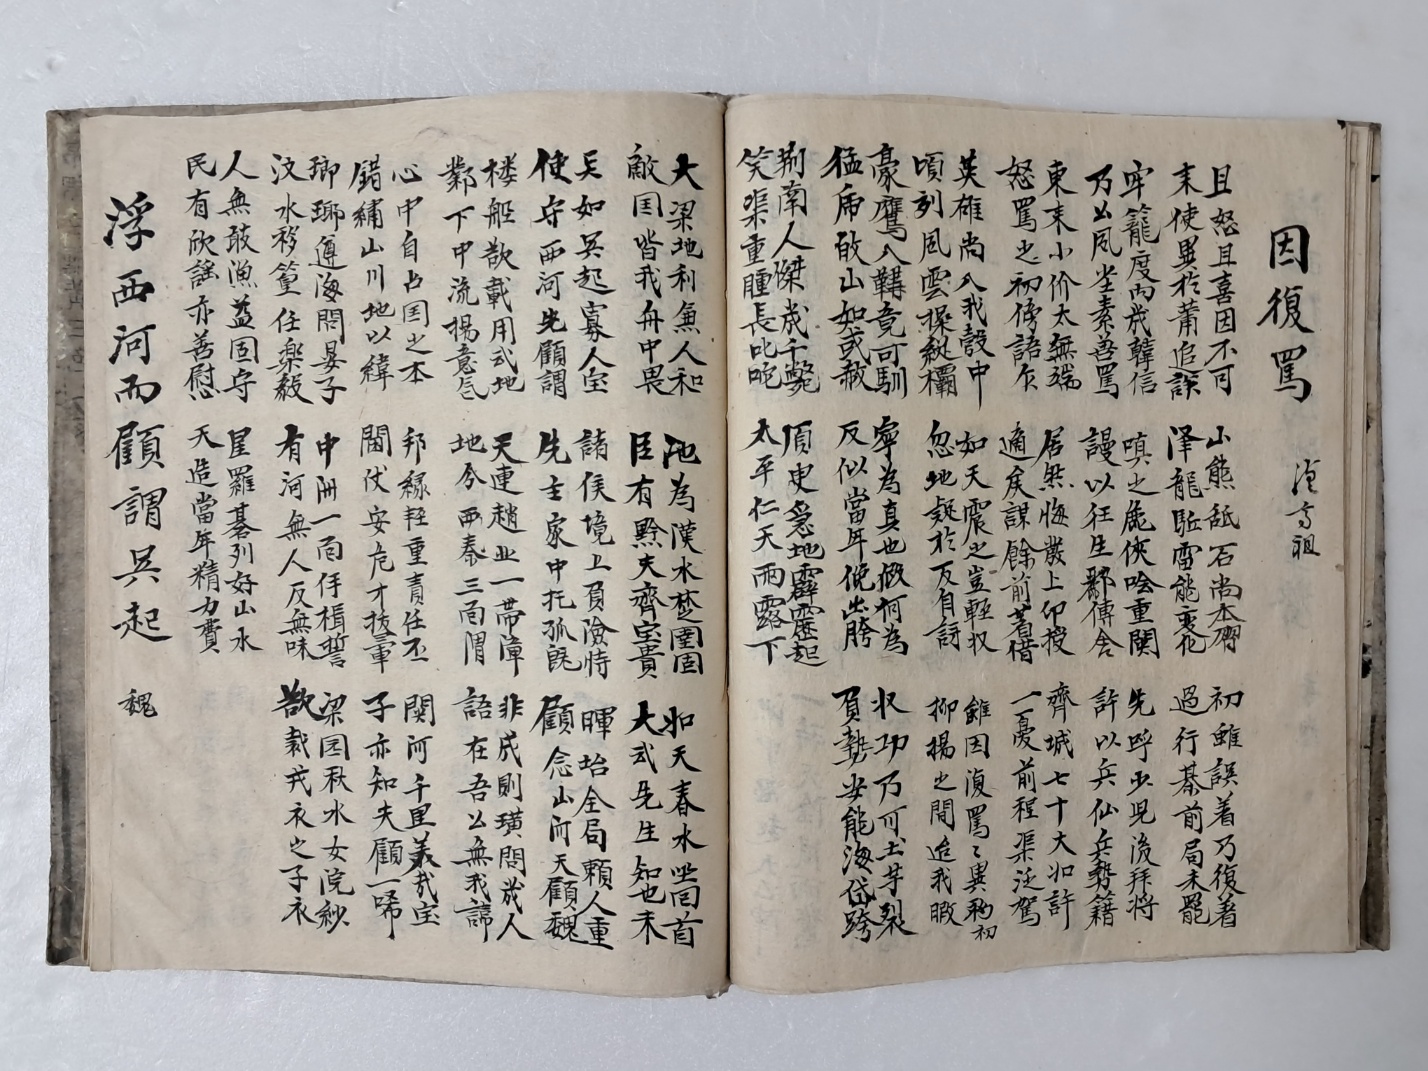 因復罵 漢高祖
且怒且喜因不可 山熊舐石尚本 初雖誤着乃復着
末使異於蕭追誤 澤龍駈雷能変化 過行棊前局未罷
牢籠度內我韓信 嗔之麁俠噲重関 先呼少児後拜将
乃公風坐素善罵 謾以狂生酈傳舍 許以兵仙兵勢籍
東来小价太無端 居然悔發上印授 齊城七十大如許
怒罵之初傍諸 適矣謀餘前著借 一憂前程渠泛駕
英雄尚入我彀中 如天震之豈輕収 雖因復罵〻異於初
頃刻風雲操縦欄 忽地疑於反自訝 抑揚之間迨我暇
豪鷹入鞲竟可馴 寧為真也假何為 収功乃可土茅裂
猛虎敀山如或赦 反似當年俛出胯 負勢安能海岱跨
荆南人傑歲千斃 須臾急地霹靂起
笑渠重腫長叱咤 太平仁天雨露下
大梁地利兼人和 池為漢水楚圉固 如天春水坐回首
敵囯皆我舟中畏 臣有黥夫齊宝貴 大武先生知也未
兵如吳起寡人宝 諸侯境上負險恃 暉始全局賴人重
使守西河先顧謂 先主家中托孤旣 顧念山河天顧魏
楼舡歆載用武地 天連趙北一帶障 非成則璜問茂人
鄴下中流揚意气 地分西秦三面渭 語在吾公無我諱
心中自占囯之本 邦緣輊重責任丕 関河千里美哉宝
錯繡山川地以緯 閫伏安危才技彙 子亦知夫顧一唏
瑯琊遵海問晏子 中洲一面俘楫誓 梁园秋水女浣紗
汶水移篁任樂毅 有河無人反無味 歆裁戎衣之子衣
人無敢漁益固守 星羅碁列好山水
民有欣謡亦善慰 天造當年精力費
浮西河而顧謂吳起 魏